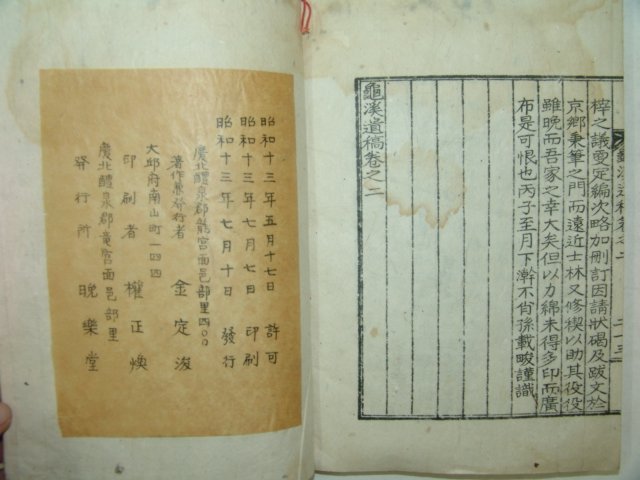 梓之議爰定編次略加刪訂因請狀碣及跋文於
京鄉秉筆之門而遠近士林又修稧以助其役役
雖晩而吾家之幸大矣但以力綿未得多印而廣
布是可恨也丙子至月下澣不肖孫載晙謹識
龜溪遺稿卷之二
昭和十三年五月十七日 許可
昭和十三年七月七日 印刷
昭和十三年七月十日 發行
慶北醴泉郡龍宮面邑部里四〇〇
著作兼發行者 金定浚
大邱府南山町一四四
印刷者 權正煥
慶北醴泉郡竜宮面邑部里
發行所 晩樂堂